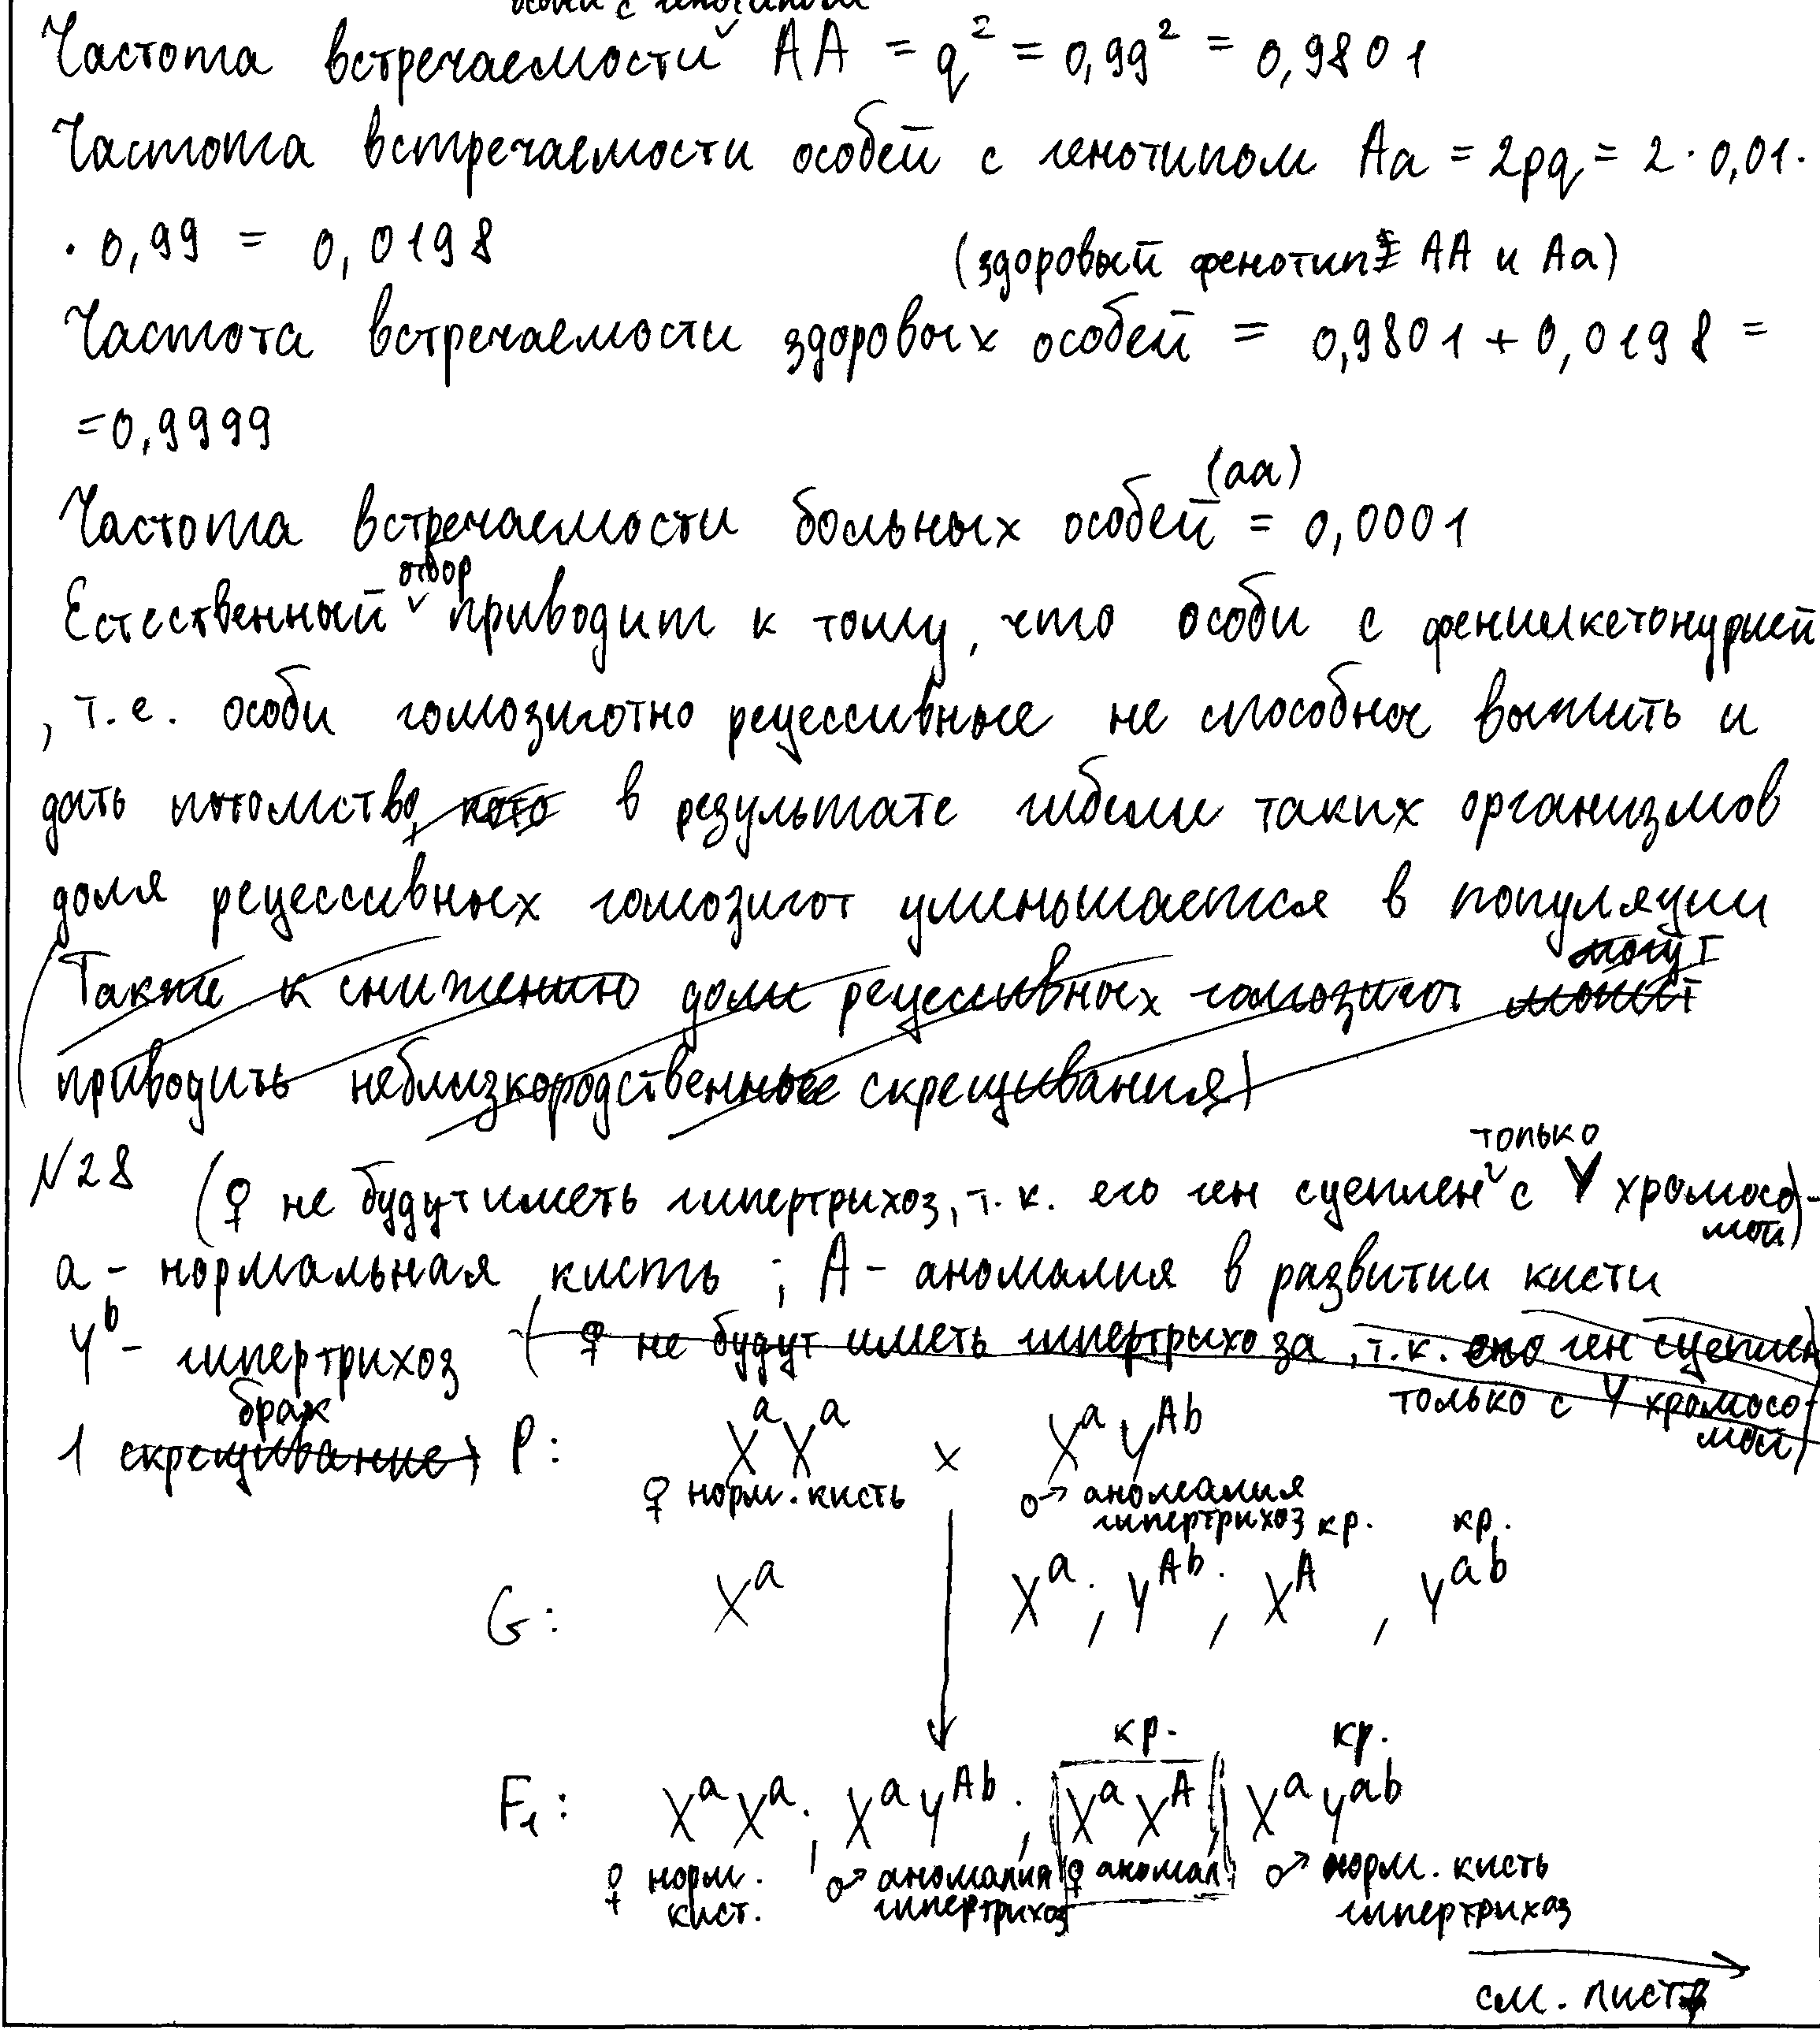 особи с генотипом
Частота встречаемости ˅ АА = q² = 0,99² = 0,9801
Частота встречаемости особей с генотипом Аа = 2pq = 2 · 0,01 ·
· 0,99 = 0,0198
(здоровый фенотип АА и Аа)
Частота встречаемости здоровых особей = 0,9801 + 0,0198 =
= 0,9999
(аа)
Частота встречаемости больных особей = 0,0001
отбор
Естественный ˅ приводит к тому, что особи с фенилкетонурией
, т.е. особи гомозиготно рецессивные не способны выжить и
дать потомство, кото в результате гибели таких организмов
доля рецессивных гомозигот уменьшается в популяции
могут
(Также к снижению доли рецессивных гомозигот может
приводить неблизкородственные скрещивания)
только
N28 (♀ не будут иметь гипертрихоз, т.к. его ген сцеплен ˅ с Y хромосо-
мой)
а - нормальная кисть ; А - аномалия в развитии кисти
Yᵇ - гипертрихоз (♀ не будут иметь гипертрихоза, т.к. его ген сцеплен
только с Y хромосо-
мой)
брак
1 скрещивание) P: XᵃXᵃ × XᵃYᴬᵇ
♀ норм. кисть ♂ аномалия
гипертрихоз
кр. кр.
G: Xᵃ Xᵃ, Yᴬᵇ, Xᴬ, Yᵃᵇ
кр. кр.
F₁: XᵃXᵃ, XᵃYᴬᵇ, XᵃXᴬ, XᵃYᵃᵇ
♀ норм. ♂ аномалия ♀ аномал. ♂ норм. кисть
кист. гипертрихоз гипертрихоз
см. лист